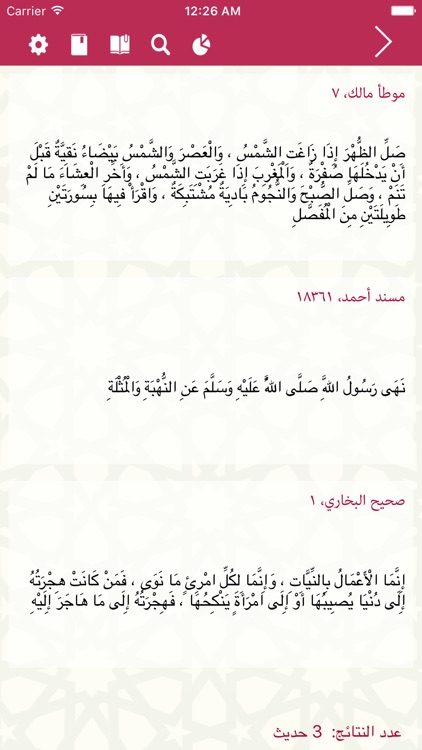 Carrier 12:26 AM
موطأ مالك، ٧
صَلِّ الظُّهْرَ إِذَا زَاغَتِ الشَّمْسُ ، وَالْعَصْرَ وَالشَّمْسُ بَيْضَاءُ نَقِيَّةٌ قَبْلَ
أَنْ يَدْخُلَهَا صُفْرَةٌ ، وَالْمَغْرِبَ إِذَا غَرَبَتِ الشَّمْسُ ، وَأَخِّرِ الْعِشَاءَ مَا لَمْ
تَنَمْ ، وَصَلِّ الصُّبْحَ وَالنُّجُومُ بَادِيَةٌ مُشْتَبِكَةٌ ، وَاقْرَأْ فِيهَا بِسُورَتَيْنِ
طَوِيلَتَيْنِ مِنَ الْمُفَصَّلِ
مسند أحمد، ١٨٣٦١
نَهَى رَسُولُ اللَّهِ صَلَّى اللَّهُ عَلَيْهِ وَسَلَّمَ عَنِ النُّهْبَةِ وَالْمُثْلَةِ
صحيح البخاري، ١
إِنَّمَا الْأَعْمَالُ بِالنِّيَّاتِ ، وَإِنَّمَا لِكُلِّ امْرِئٍ مَا نَوَى ، فَمَنْ كَانَتْ هِجْرَتُهُ
إِلَى دُنْيَا يُصِيبُهَا أَوْ إِلَى امْرَأَةٍ يَنْكِحُهَا ، فَهِجْرَتُهُ إِلَى مَا هَاجَرَ إِلَيْهِ
عدد النتائج: 3 حديث